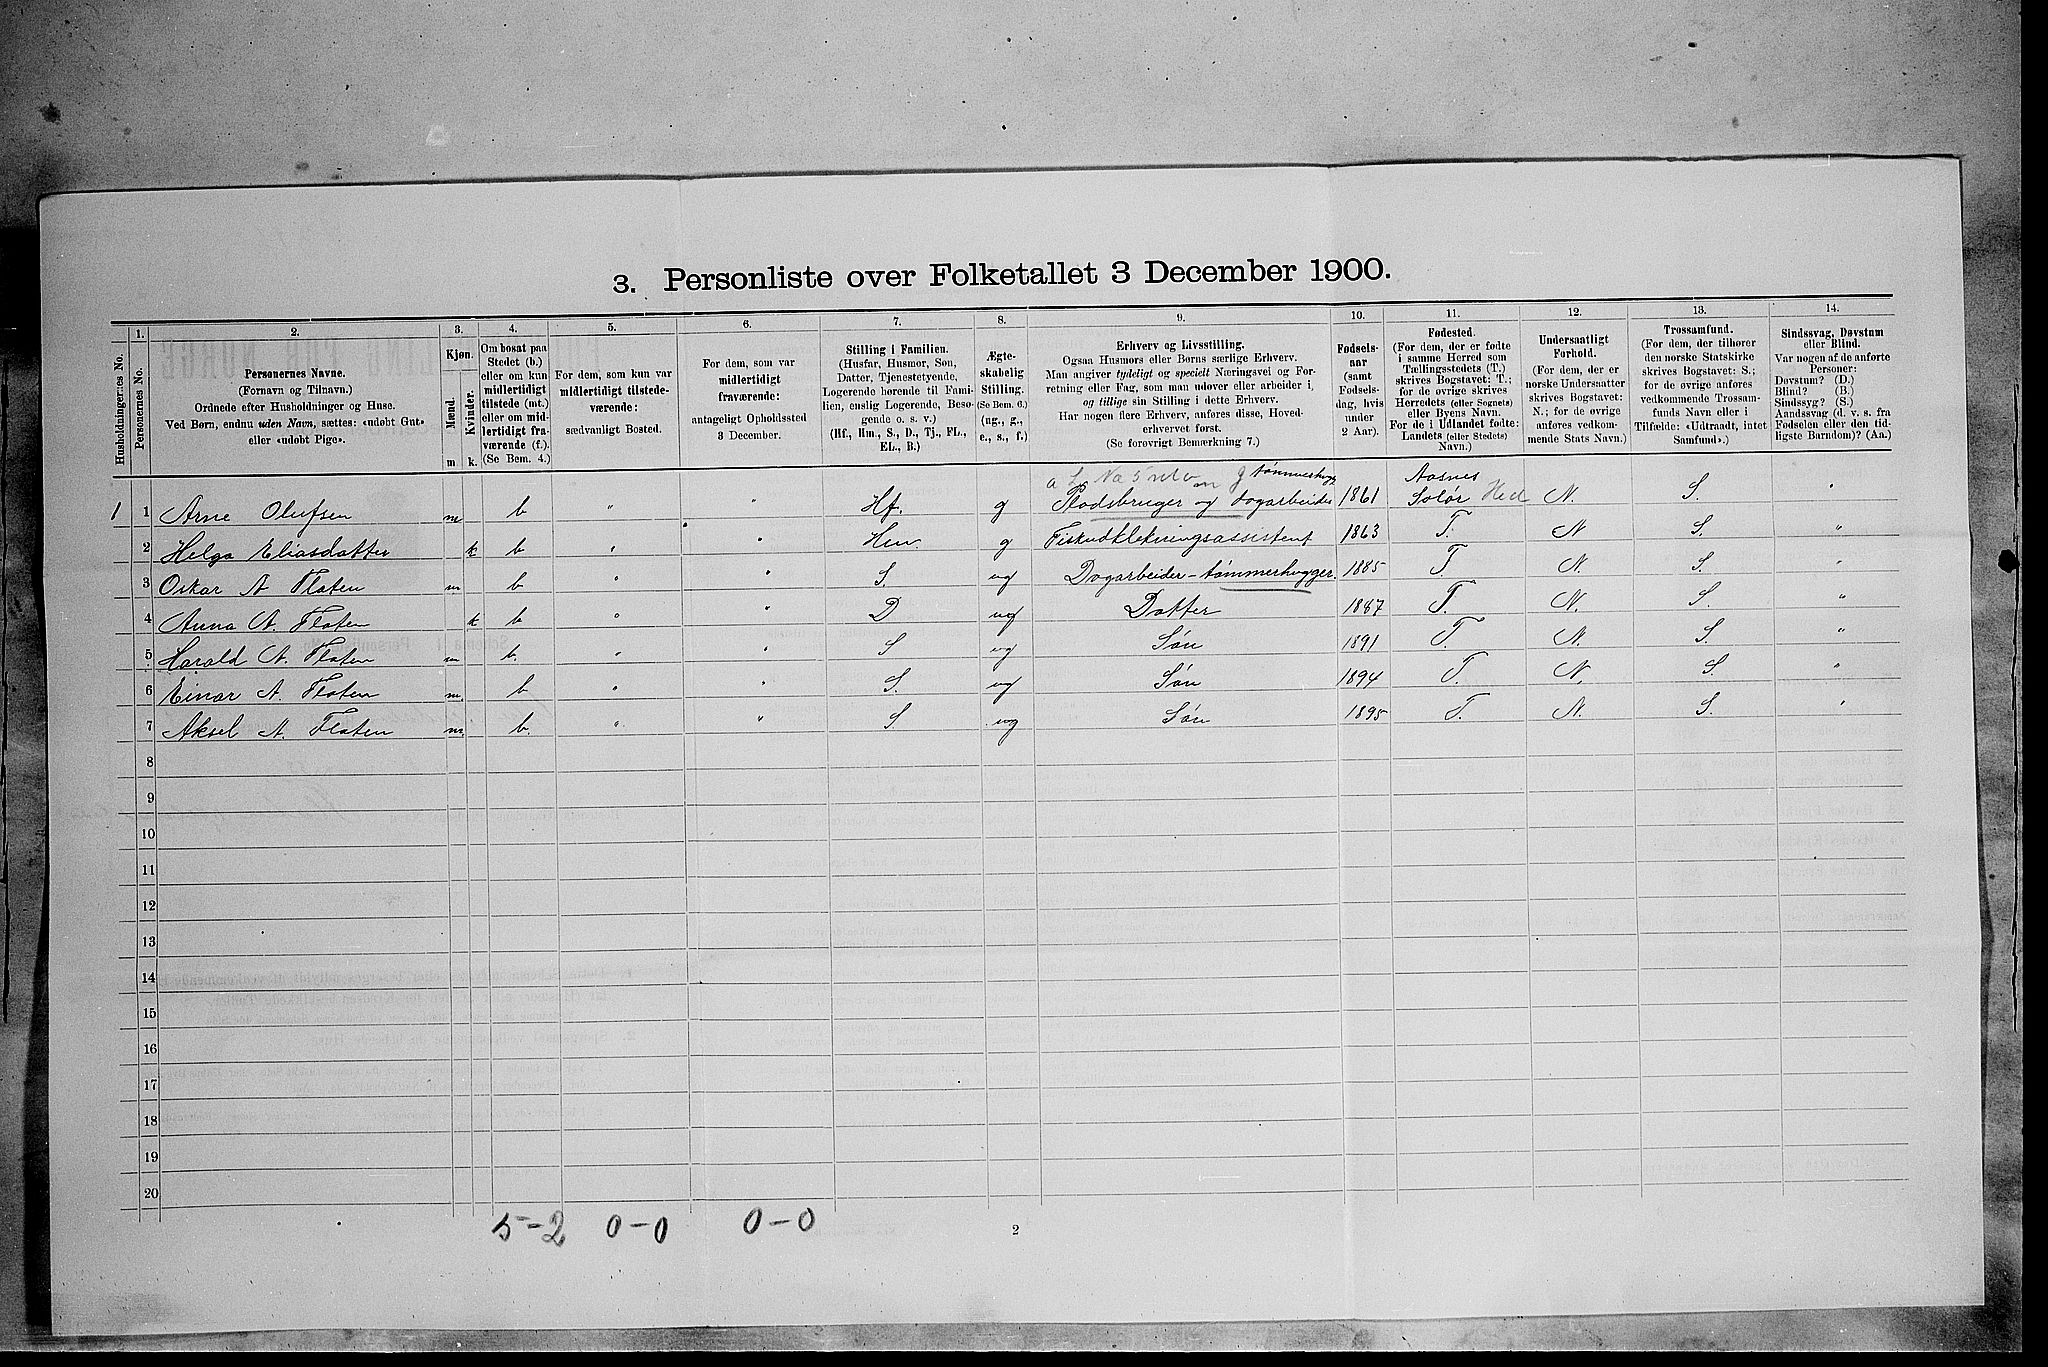 3. Personliste over Folketallet 3 December 1900.
Husholdningernes No.
1.
Personernes No.
2.
Personernes Navne.
(Fornavn og Tilnavn.)
Ordnede efter Husholdninger og Huse.
Ved Børn, endnu uden Navn, sættes: «udøbt Gut»
eller «udøbt Pige».
3.
Kjøn.
Mænd.
Kvinder.
m k.
4.
Om bosat paa
Stedet (b.)
eller om kun
midlertidigt
tilstede (mt.)
eller om mid-
lertidigt fra-
værende (f.).
(Se Bem. 4.)
5.
For dem, som kun var
midlertidigt tilstede-
værende:
sædvanligt Bosted.
6.
For dem, som var
midlertidigt
fraværende:
antageligt Opholdssted
3 December.
7.
Stilling i Familien.
(Husfar, Husmor, Søn,
Datter, Tjenestetyende,
Logerende hørende til Fami-
lien, enslig Logerende, Besø-
gende o. s. v.)
(Hf., Hm., S., D., Tj., FL.,
EL., B.)
8.
Ægte-
skabelig
Stilling.
(Se Bem. 6.)
(ug., g.,
e., s., f.)
9.
Erhverv og Livsstilling.
Ogsaa Husmors eller Børns særlige Erhverv.
Man angiver tydeligt og specielt Næringsvei og For-
retning eller Fag, som man udover eller arbeider i,
og tillige sin Stilling i dette Erhverv.
Har nogen flere Erhverv, anføres disse, Hoved-
erhvervet først.
(Se forøvrigt Bemærkning 7.)
10.
Fødsels-
aar
(samt
Fødsels-
dag, hvis
under
2 Aar).
11.
Fødested.
(For dem, der er fødte
i samme Herred som
Tællingsstedets (T.)
skrives Bogstavet: T.;
for de øvrige skrives
Herredets (eller Sognets)
eller Byens Navn.
For de i Udlandet fødte:
Landets (eller Stedets)
Navn.)
12.
Undersaatligt
Forhold.
(For dem, der er
norske Undersaatter
skrives Bogstavet:
N.; for de øvrige
anføres vedkom-
mende Stats Navn.)
13.
Trossamfund.
(For dem, der tilhører
den norske Statskirke
skrives Bogstavet: S.;
for de øvrige anføres
vedkommende Trossam-
funds Navn eller i
Tilfælde: «Udtraadt, intet
Samfund».)
14.
Sindssvag, Døvstum
eller Blind.
Var nogen af de anførte
Personer:
Døvstum? (D.)
Blind? (B.)
Sindssyg? (S.)
Aandssvag (d. v. s. fra
Fødselen eller den tid-
ligste Barndom)? (Aa.)
tømmerhugg Aasnes
1 1 Arne Olufsen m b " " Hf. g Pladsbruger og dagarbeider 1861 Solør Hed N. S. "
2 Helga Eliasdatter k b " " Hm. g Fiskudklekningsassistent 1863 T. N S. "
3 Oskar A Flaten m b " " S. ug Dagarbeider - tømmerhugger. 1885 T. N. S. "
4 Anna A. Flaten k b " " D ug Datter 1887 T. N. S. "
5 Harald A. Flaten m b. " " S ug Søn 1891 T. N. S. "
6 Einar A. Flaten m. b " " S. ug Søn 1894 T. N. S. "
7 Aksel A. Flaten m. b. " " S ug Søn 1895 T. N. S. "
8
9
10
11
12
13
14
15
16
17
18
19
20
5-2 0-0 0-0
2